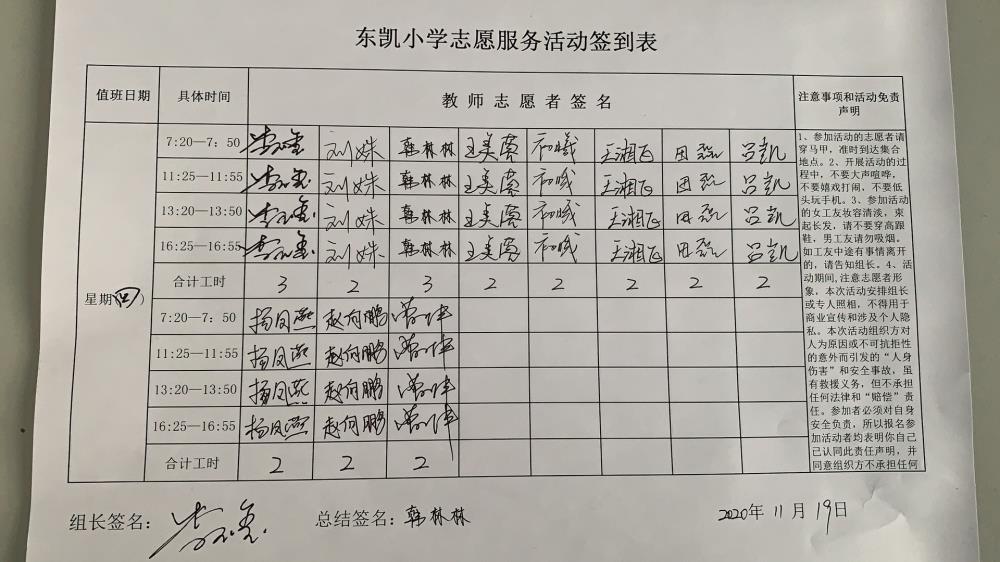 东凯小学志愿服务活动签到表
值班日期 具体时间 教师志愿者签名 注意事项和活动免责声明
7:20—7：50 刘姝 韩林林 王美蓉 王湘飞 田磊 吕凯
11:25—11:55 刘姝 韩林林 王美蓉 王湘飞 田磊 吕凯
13:20—13:50 刘姝 韩林林 王美蓉 王湘飞 田磊 吕凯
16:25—16:55 刘姝 韩林林 王美蓉 王湘飞 田磊 吕凯
合计工时 3 2 3 2 2 2 2 2
星期(四)
7:20—7：50 杨凤燕 赵向鹏
11:25—11:55 杨凤燕 赵向鹏
13:20—13:50 杨凤燕 赵向鹏
16:25—16:55 杨凤燕 赵向鹏
合计工时 2 2 2
1、参加活动的志愿者请
穿马甲，准时到达集合
地点。2、开展活动的过
程中，不要大声喧哗，
不要嬉戏打闹、不要低
头玩手机。3、参加活动
的女工友妆容清淡，束
起长发，请不要穿高跟
鞋，男工友请勿吸烟。
如工友中途有事情离开
的，请告知组长。4、活
动期间,注意志愿者形
象，本次活动安排组长
或专人照相，不得用于
商业宣传和涉及个人隐
私。本次活动组织方对
人为原因或不可抗拒性
的意外而引发的“人身
伤害”和安全事故，虽
有救援义务，但不承担
任何法律和“赔偿”责
任。参加者必须对自身
安全负责，所以报名参
加活动者均表明你自己
己认同此责任声明，并
同意组织方不承担任何
组长签名： 总结签名：韩林林 2020年 11月 19日